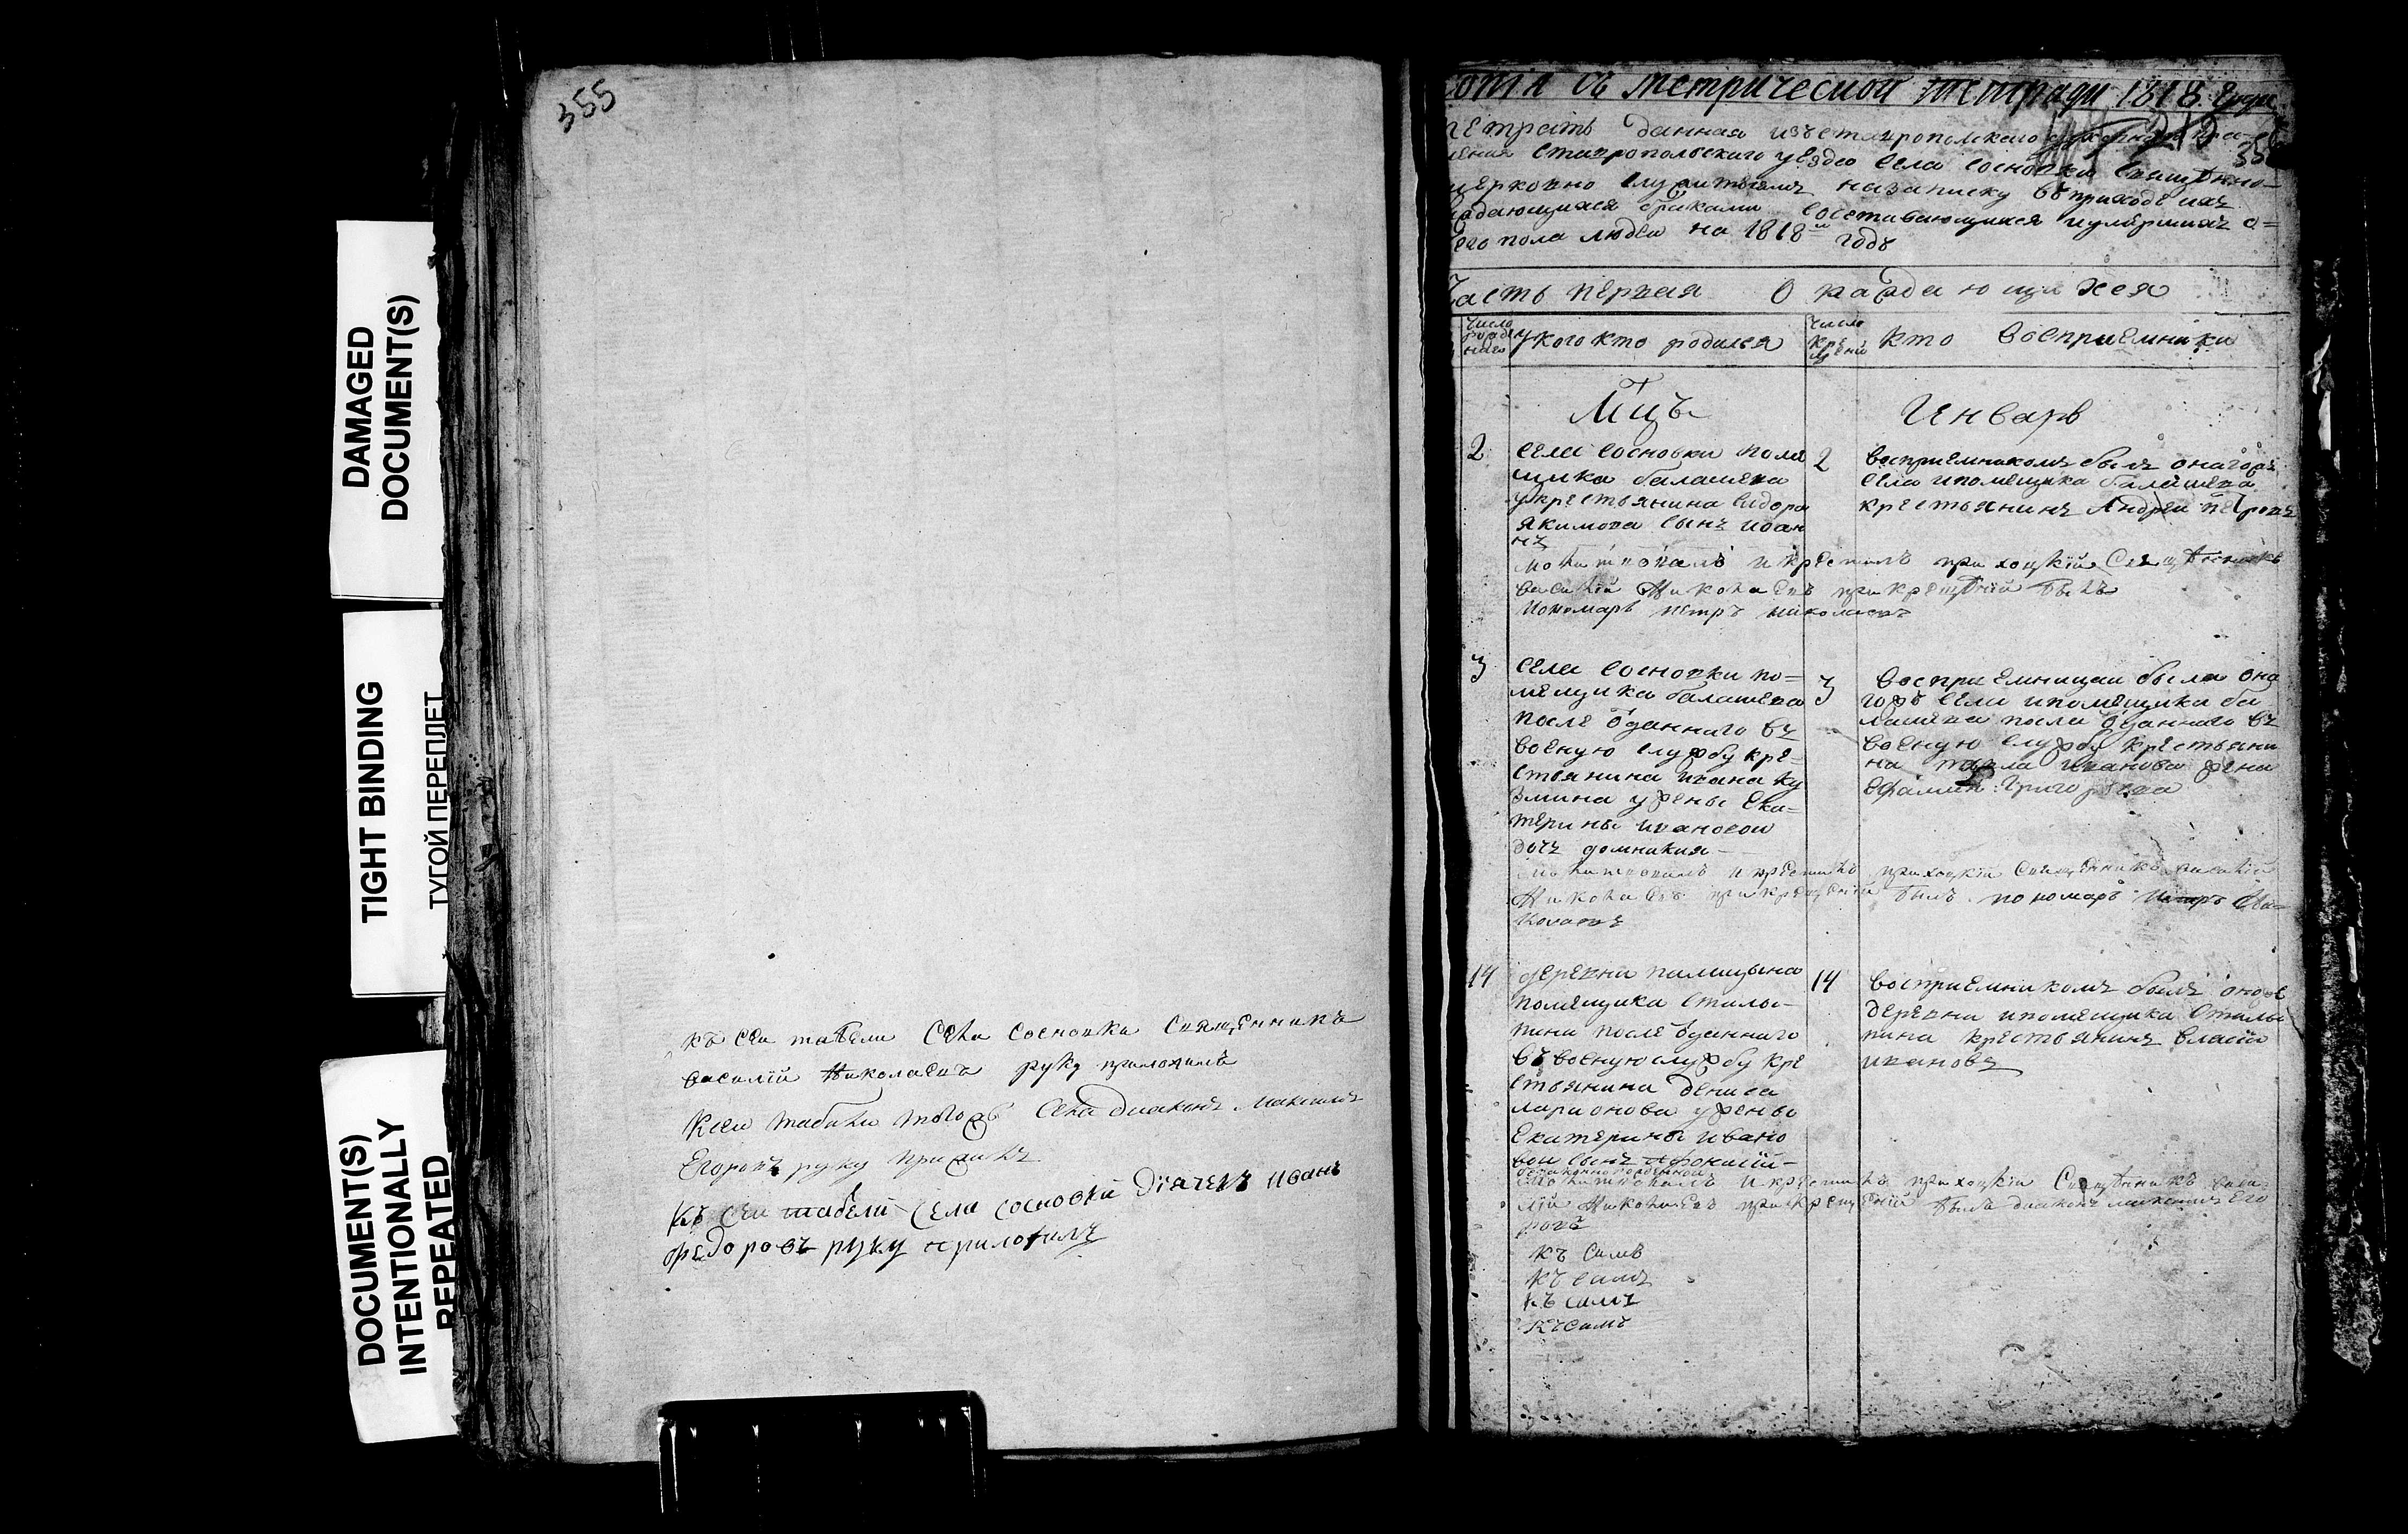 DAMAGED
DOCUMENT(S)
TIGHT BINDING
ТУГОЙ ПЕРЕПЛЕТ
DOCUMENT(S)
INTENTIONALLY
REPEATED
355
къ сеи табели села сосновки священникъ
василiй Николаевъ руку приложилъ
Ксеи табели тогожъ села диаконъ
Егоровъ руку
Къ сеи табели села сосновки Дiячекъ иванъ
федоровъ руку приложилъ
копiя съ метрической тетради 1818 года
тетрать данная изъ ставропольского
ставропольскаго уезда села сосновки священно-
церковно служителемъназаписку въприходе ихъ
раждающихся браками сосетавающихся иумершихъ о=
его пола людеи на 1818й годъ
Часть первая О раждающихся
число
укого кто родился
число
кто восприемники
Мцъ Генварь
2 села сосновки поме
щика балашева
укрестьянина сидора
якимова сынъ иоан
нъ
2 восприемникомъ былъ оногожъ
села ипомещика балашева
крестьянинъ Андреи петровъ
молитвовалъ икрестилъ приходкiй Священникъ
василiй Николаевъ прикрещенiй былъ
пономарь петръ николаевъ
3 села сосновки по=
мещика балашева
после отданнаго въ
военую службу кре=
стьянина ивана ку
змина ужены Ека=
терины ивановои
дочь домникия
3 восприемницаи была оно
гожъ села ипомещика ба
лашева после отданнаго въ
военую службу крестьяни
на павла иванова жена
Григорьева
молитвовалъ икрестилъ приходкiй Священникъ василiй
Николаевъ прикрещенiй былъ пономарь петръ Ни=
колаевъ
14 деревни
помещика столы-
пина после отданнаго
въвоенуюслужбу кре
стьянина дениса
ларионова ужены
Екатерины ивано
вои сынъ афонасiй
незаконнорожденной
14 восприемникомъ былъ оной
деревни ипомещика столы
пина крестьянинъ власiй
ивановъ
молитвовалъ икрестилъ приходкiй Священникъ васи=
лiй Николаевъ прикрещенiй былъ диаконъ Его
ровъ
къ
къ
къ
къ